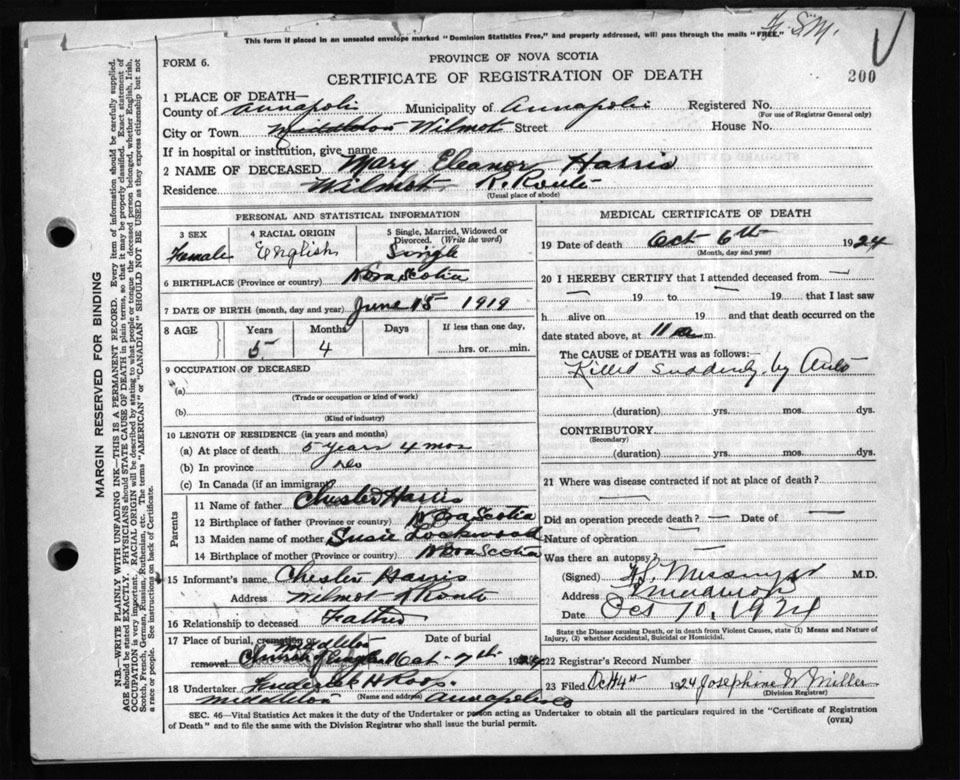 This form if placed in an unsealed envelope marked "Dominion Statistics Free," and properly addressed, will pass through the mails "FREE."
FORM 6.
PROVINCE OF NOVA SCOTIA
200
CERTIFICATE OF REGISTRATION OF DEATH
1 PLACE OF DEATH—
County of Annapolis Municipality of Annapolis Registered No.
(For use of Registrar General only)
City or Town Middleton Wilmot Street House No.
If in hospital or institution, give name
2 NAME OF DECEASED Mary Eleanor Harris
Residence Wilmot R. Route
(Usual place of abode)
PERSONAL AND STATISTICAL INFORMATION
3 SEX 4 RACIAL ORIGIN 5 Single, Married, Widowed or Divorced. (Write the word)
Female English Single
6 BIRTHPLACE (Province or country) Nova Scotia
7 DATE OF BIRTH (month, day and year) June 15 1919
8 AGE Years Months Days If less than one day,
5 4 hrs. or min.
9 OCCUPATION OF DECEASED
(a)
(Trade or occupation or kind of work)
(b)
(Kind of industry)
10 LENGTH OF RESIDENCE (in years and months)
(a) At place of death 5 years 4 mos
(b) In province do
(c) In Canada (if an immigrant)
Parents
11 Name of father Chester Harris
12 Birthplace of father (Province or country) Nova Scotia
13 Maiden name of mother Susie Lockwood
14 Birthplace of mother (Province or country) Nova Scotia
15 Informant's name Chester Harris
Address Wilmot R Route
16 Relationship to deceased Father
17 Place of burial, cremation or removal Middleton Date of burial
Oct 7th 1924
18 Undertaker
Middleton (Name and address) Annapolis Co
MEDICAL CERTIFICATE OF DEATH
19 Date of death Oct 6th 1924
(Month, day and year)
20 I HEREBY CERTIFY that I attended deceased from
— 19 to — 19 that I last saw
h alive on 19 and that death occurred on the
date stated above, at 11 a m.
The CAUSE OF DEATH was as follows:
Killed suddenly by Auto
(duration) yrs. mos. dys.
CONTRIBUTORY
(Secondary)
(duration) yrs. mos. dys.
21 Where was disease contracted if not at place of death?
Did an operation precede death? — Date of —
Nature of operation —
Was there an autopsy? —
(Signed) M.D.
Address
Date Oct 10, 1924
State the Disease causing Death, or in death from Violent Causes, state (1) Means and Nature of Injury, (2) whether Accidental, Suicidal or Homicidal.
22 Registrar's Record Number
23 Filed 1924 Josephine W Miller
(Division Registrar)
SEC. 46—Vital Statistics Act makes it the duty of the Undertaker or person acting as Undertaker to obtain all the particulars required in the "Certificate of Registration of Death" and to file the same with the Division Registrar who shall issue the burial permit.
(OVER)
MARGIN RESERVED FOR BINDING
N.B.—WRITE PLAINLY, WITH UNFADING INK—THIS IS A PERMANENT RECORD. Every item of information should be carefully supplied.
AGE should be stated EXACTLY. PHYSICIANS should STATE CAUSE OF DEATH in plain terms, so that it may be properly classified. Exact statement of
OCCUPATION is very important. RACIAL ORIGIN will be described by stating to what people or tongue the deceased person belonged, whether English, Irish,
Scotch, French, German, Russian, Ruthenian, etc. The terms "AMERICAN" or "CANADIAN" SHOULD NOT BE USED as they express citizenship but not
a race or people. See instructions on back of Certificate.